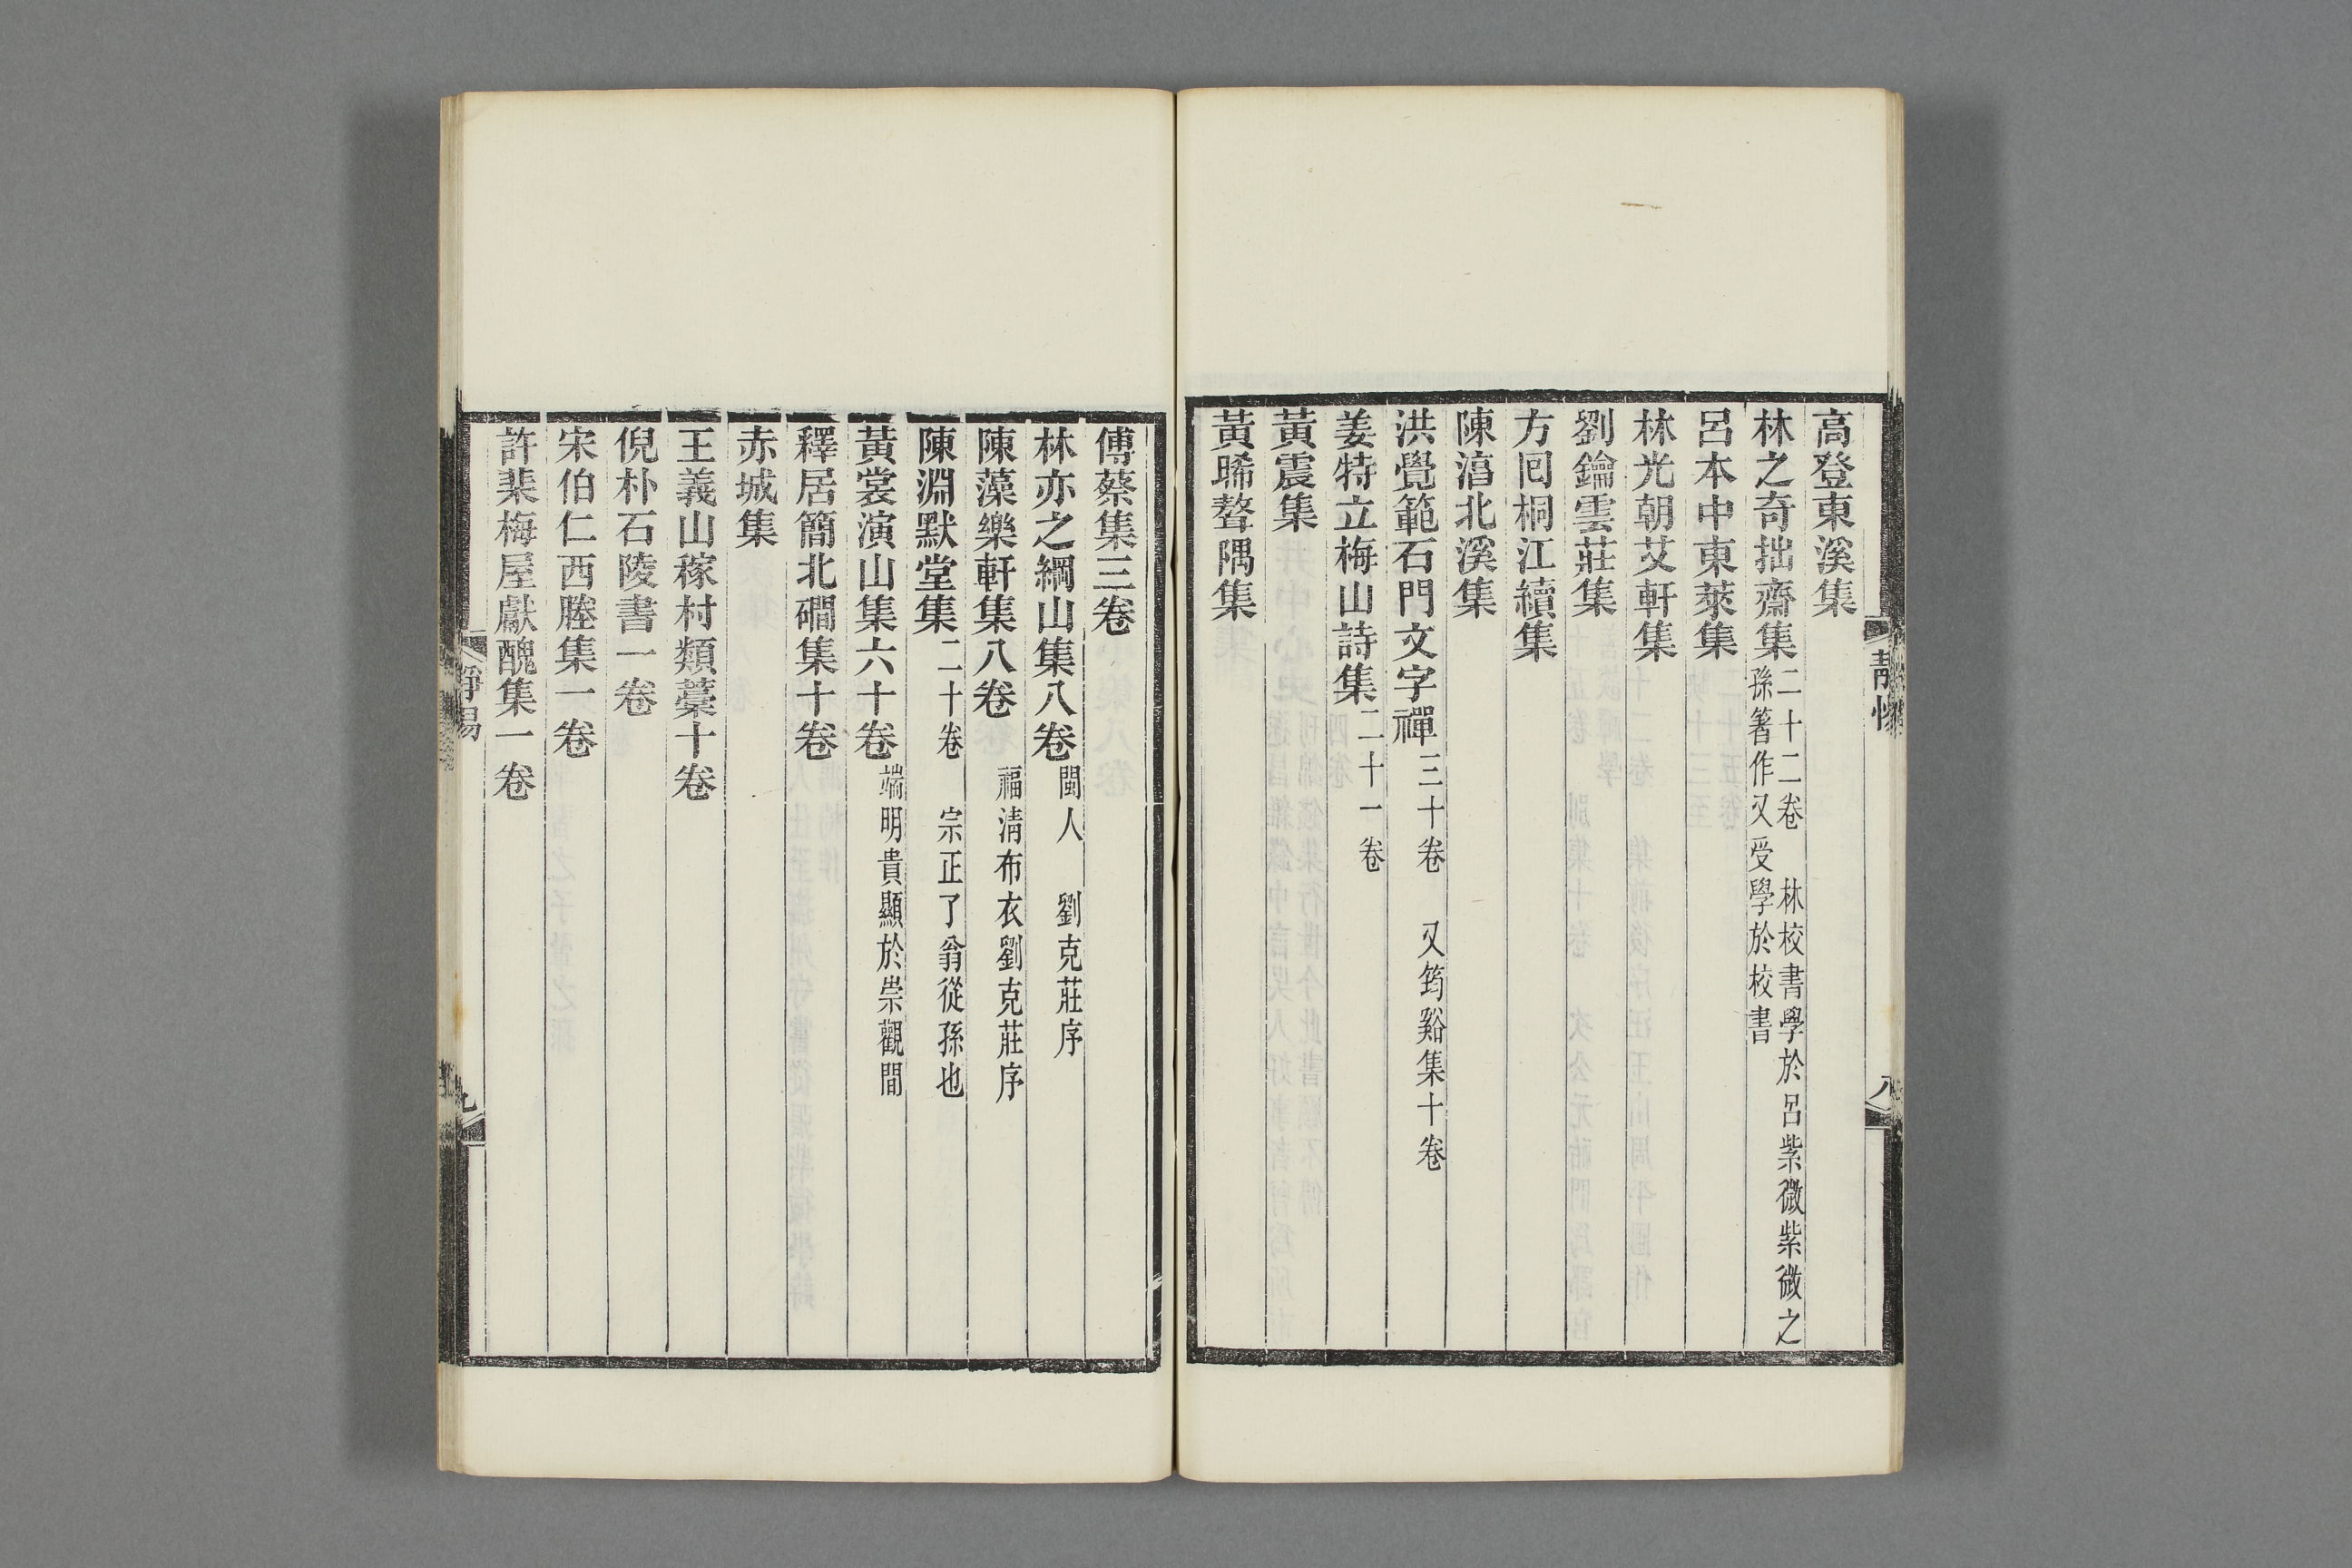 高登東溪集
林之奇拙齋集二十二卷　林校書學於呂紫微紫微之
孫著作又受學於校書
呂本中東萊集
林光朝艾軒集
劉鑰雲莊集
方回桐江續集
陳淯北溪集
洪覺範石門文字禪三十卷　又筠谿集十卷
姜特立梅山詩集二十一卷
黃震集
黃晞聱隅集
八
傅蔡集三卷
林亦之綱山集八卷閩人　劉克莊序
陳藻樂軒集八卷福清布衣劉克莊序
陳淵默堂集二十卷　宗正了翁從孫也
黃裳演山集六十卷端明貴顯於崇觀間
釋居簡北磵集十卷
赤城集
王義山稼村類藁十卷
倪朴石陵書一卷
宋伯仁西塍集一卷
許棐梅屋獻醜集一卷